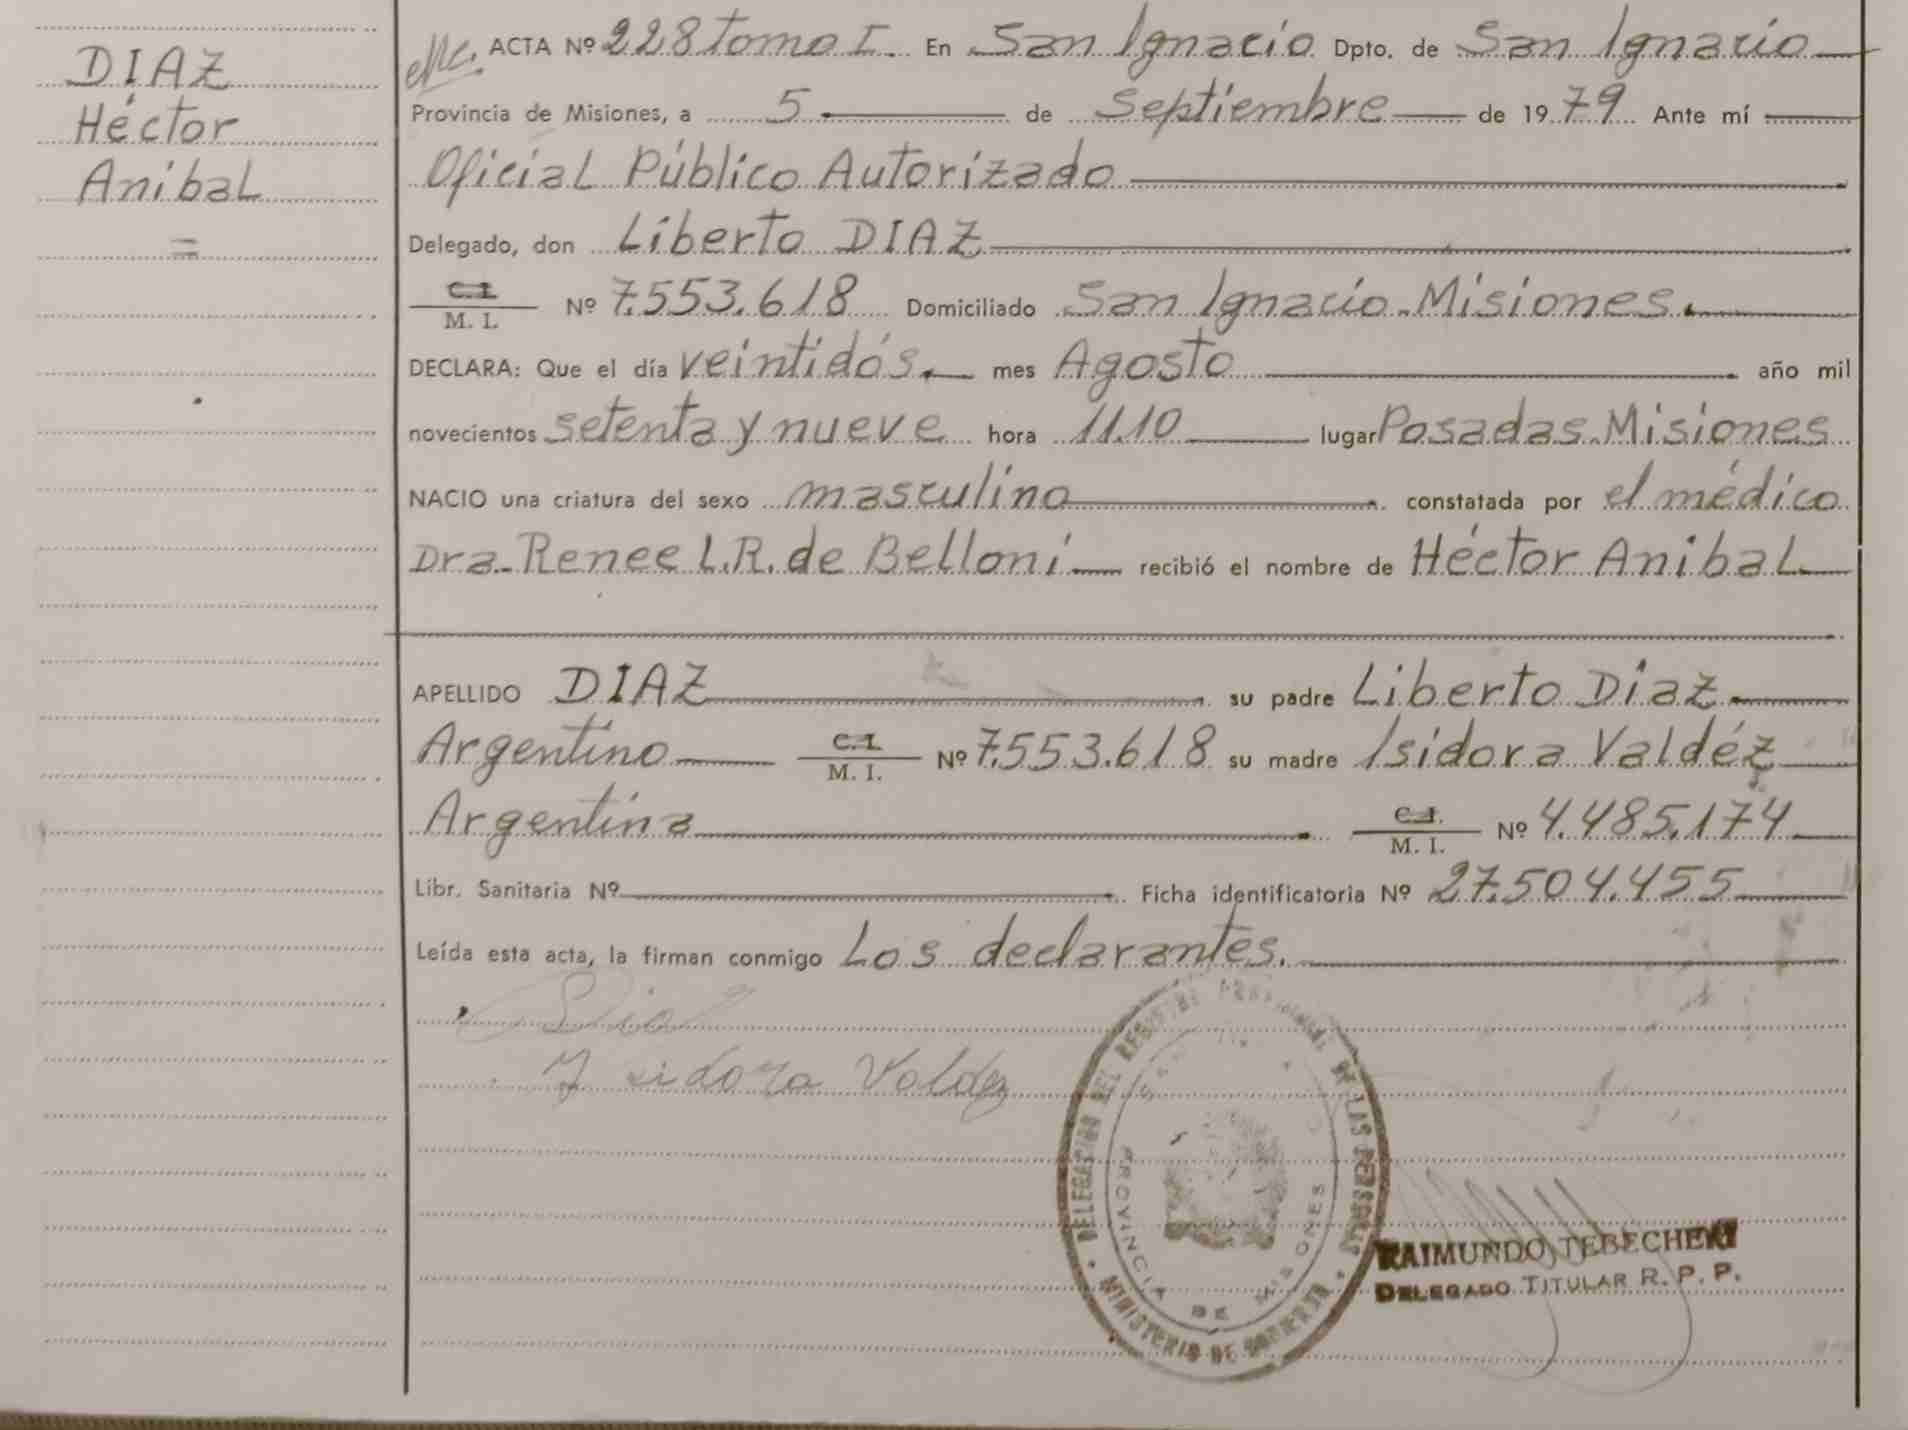 DIAZ
Héctor
Anibal
ACTA Nº 228 Tomo I. En San Ignacio Dpto. de San Ignacio
Provincia de Misiones, a 5 de Septiembre de 1979 Ante mí
Oficial Público Autorizado
Delegado, don Liberto DIAZ
C.I.
M. I. Nº 7.553.618 Domiciliado San Ignacio. Misiones.
DECLARA: Que el día veintidós mes Agosto año mil
novecientos setenta y nueve hora 11.10 lugar Posadas. Misiones
NACIO una criatura del sexo masculino constatada por el médico
Dra. Renee L.R. de Belloni recibió el nombre de Héctor Anibal
APELLIDO DIAZ su padre Liberto Diaz
Argentino C.I. M. I. Nº 7.553.618 su madre Isidora Valdéz
Argentina C.I. M. I. Nº 4.485.174
Libr. Sanitaria Nº Ficha identificatoria Nº 27.504.455
Leída esta acta, la firman conmigo Los declarantes.
Isidora Valdez
DELEGACION DEL REGISTRO PROVINCIAL DE LAS PERSONAS
PROVINCIA DE MISIONES
MINISTERIO DE GOBIERNO
RAIMUNDO TEBECHERY
DELEGADO TITULAR R. P. P.